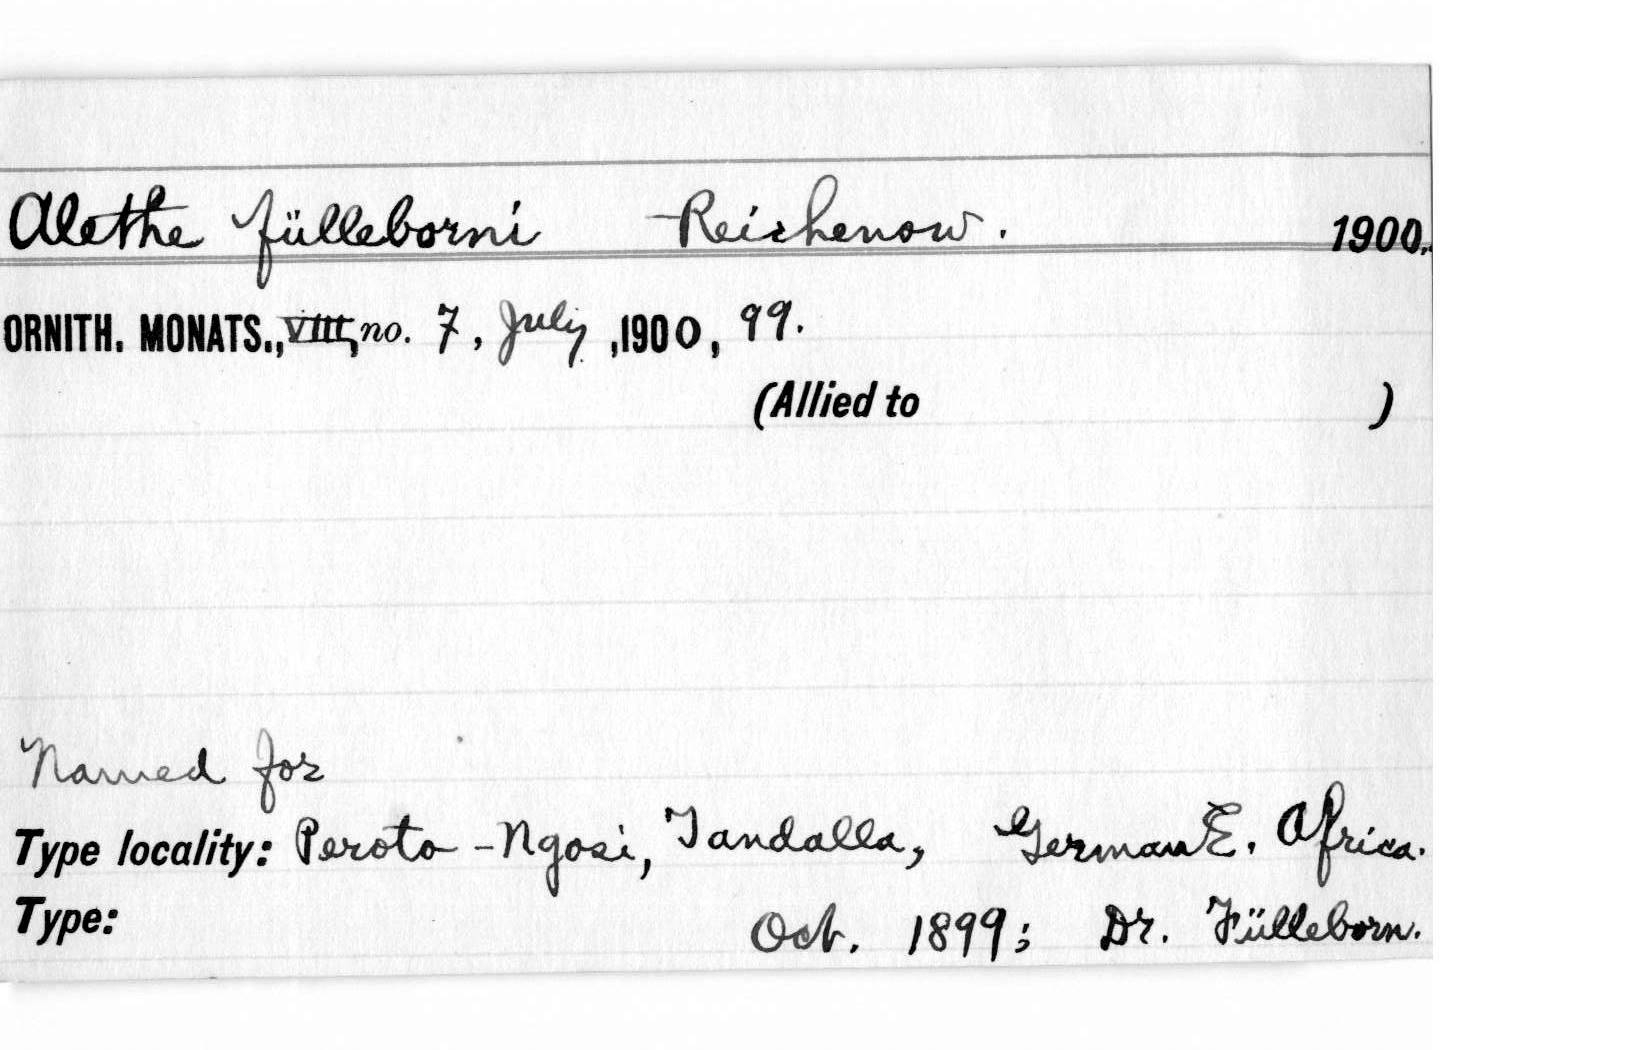 Alethe fülleborni Reichenow. 1900.
ORNITH. MONATS., VIII, no. 7, July, 1900, 99.
(Allied to )
Named for
Type locality: Peroto-Ngosi, Tandalla, German E. Africa.
Type: Oct. 1899; Dr. Fülleborn.